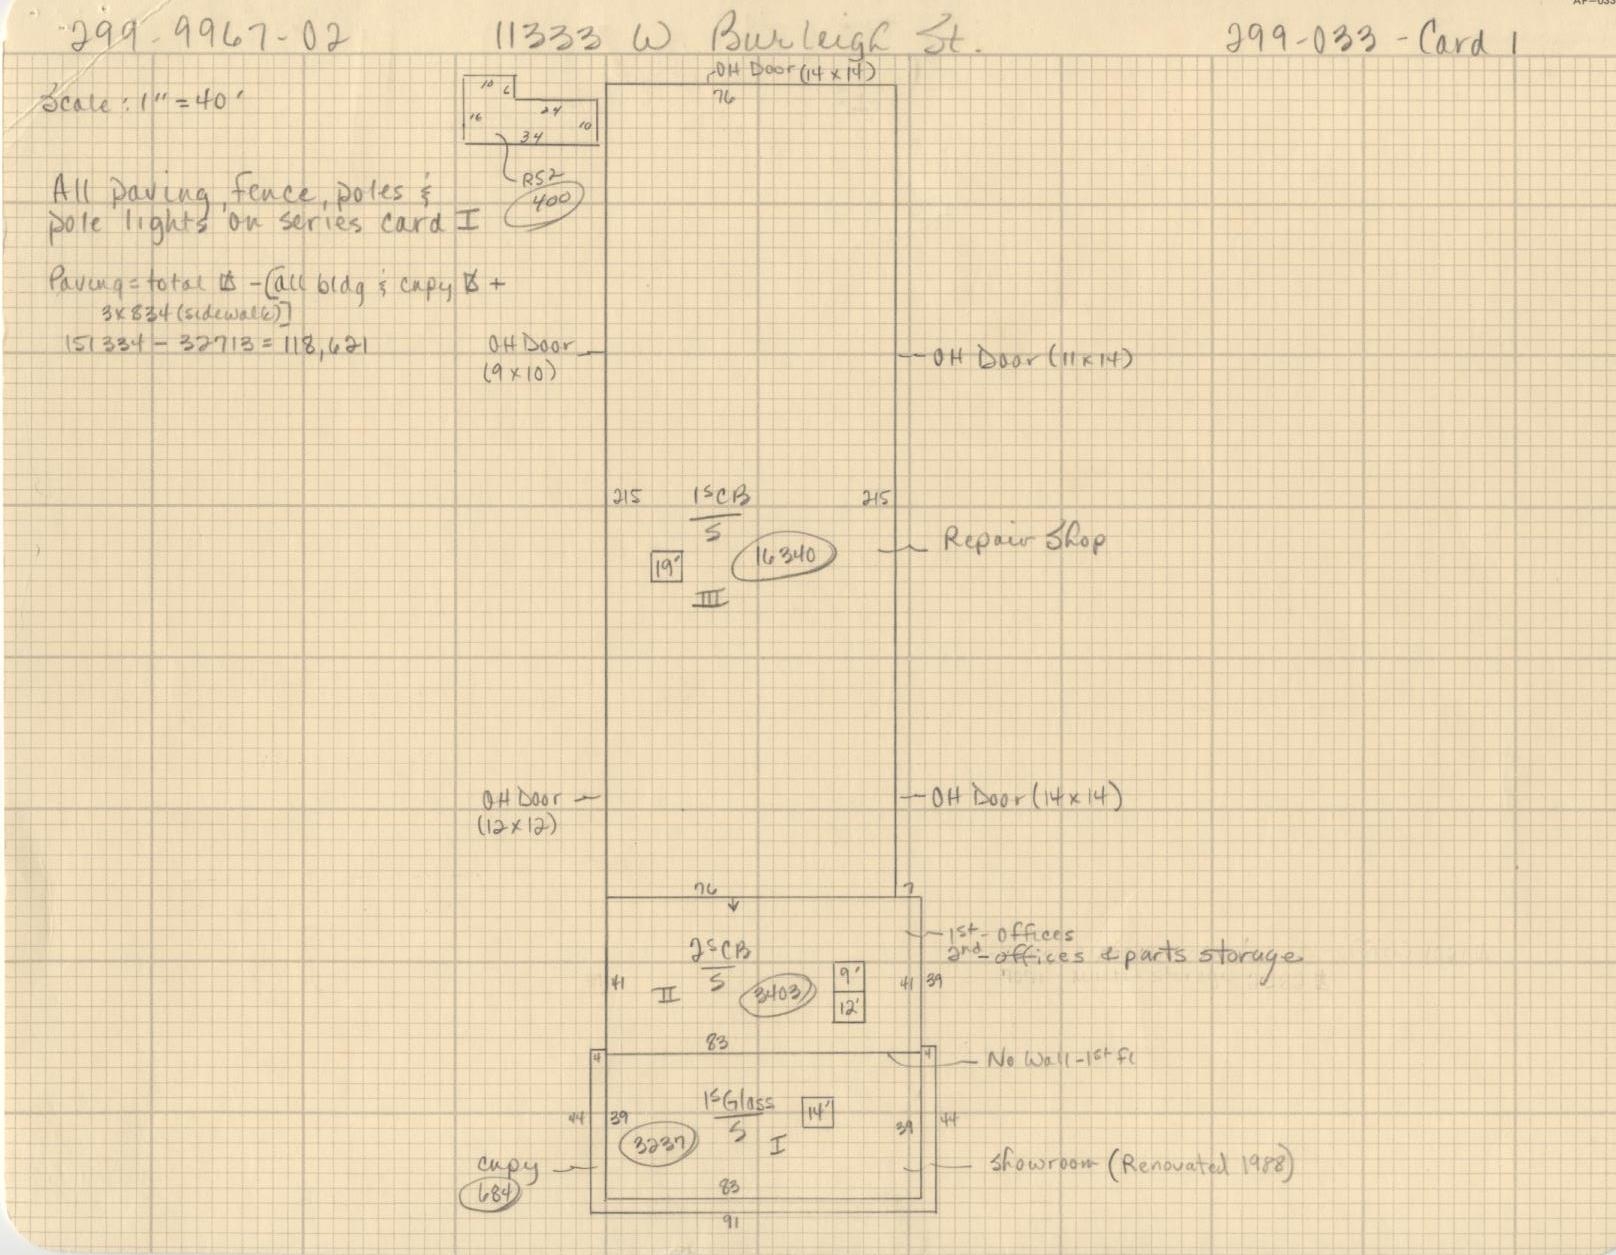 AP-033
299-9967-02
11333 W Burleigh St.
299-033-Card 1
Scale: 1" = 40'
OH Door (14 x 14)
76
10
6
24
16
34
10
RS2
400
All paving, fence, poles &
pole lights on series card I
Paving = total ⍁ - [all bldg & cnpy ⍁ +
3x834 (sidewalk)]
151334 - 32713 = 118,621
OH Door
(9 x 10)
OH Door (11 x 14)
215
1sCB
215
S
Repair Shop
19'
16340
III
OH Door
(12 x 12)
OH Door (14 x 14)
76
7
1st - Offices
2nd - offices & parts storage
2sCB
S
41
II
3403
9'
12'
41
39
83
4
4
No Wall - 1st fl
1sGlass
14'
S
44
39
3237
I
39
44
cnpy
684
Showroom (Renovated 1988)
83
91